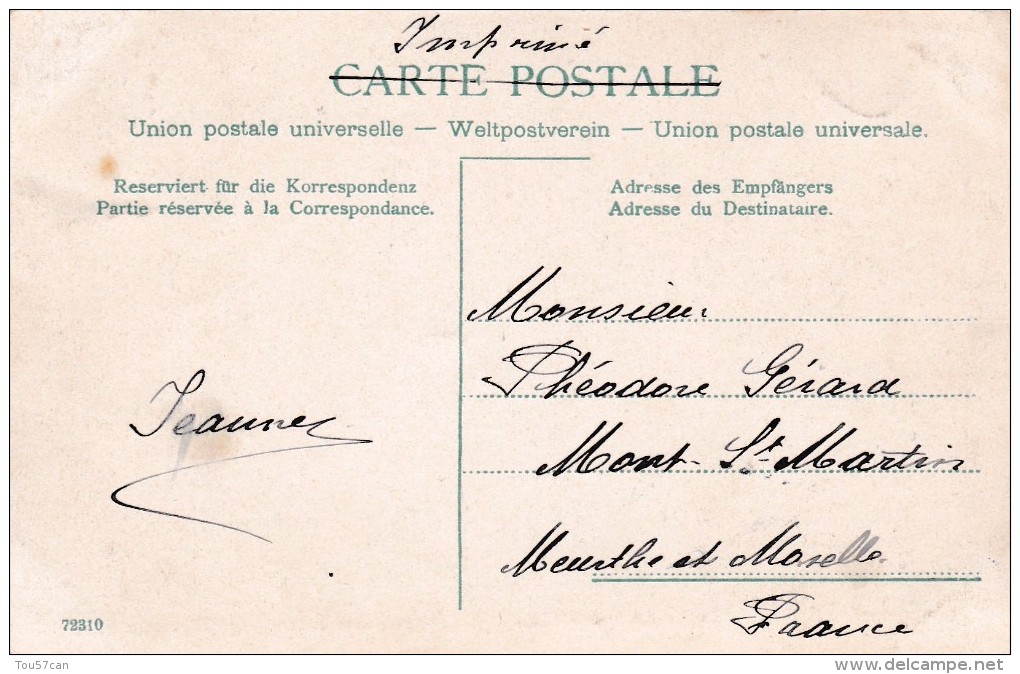 Imprimé
CARTE POSTALE
Union postale universelle — Weltpostverein — Union postale universale.
Reserviert für die Korrespondenz
Partie réservée à la Correspondance.
Adresse des Empfängers
Adresse du Destinataire.
Monsieur
Théodore Gérard
Mont-St-Martin
Meurthe et Moselle
France
Jeanne
72310
Tou57can
www.delcampe.net